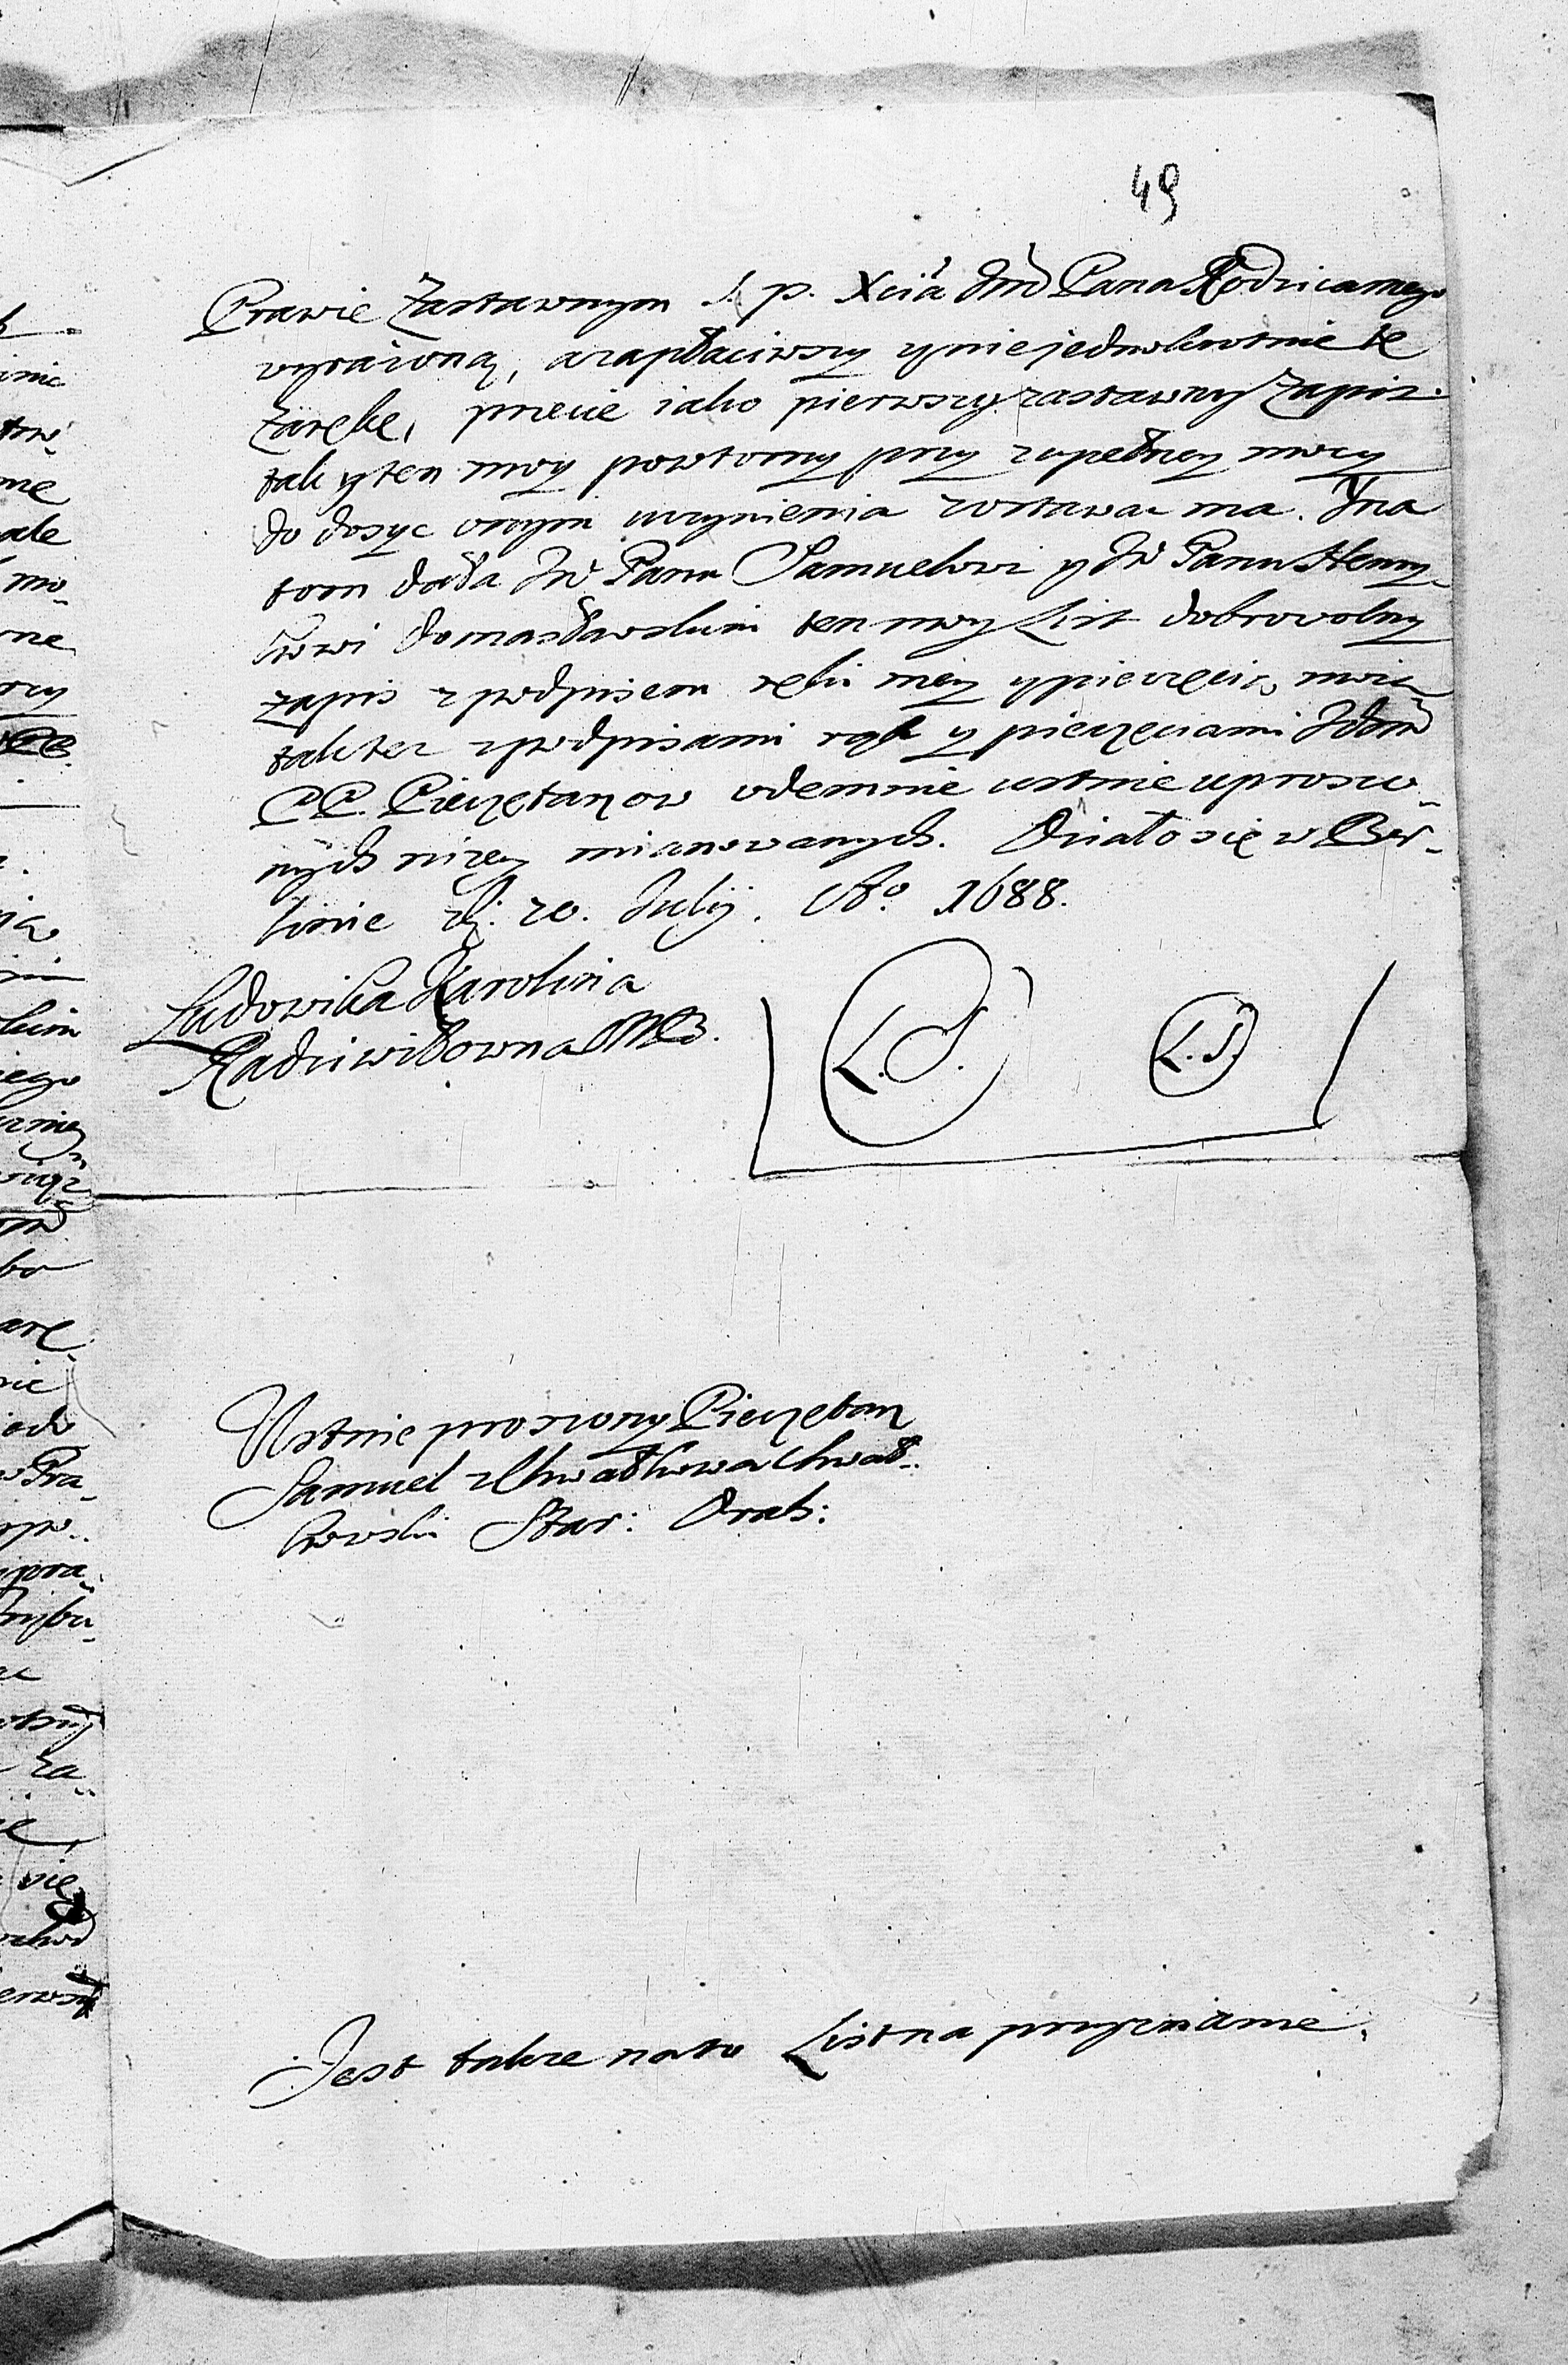 49
Prawie Zastawnym S. p. Xcia Jm Pana Rodzica mego
wyrazoną, a zapłaciwszy y nie jednokrotnie te
Zarękę, przecie iako pierwszy zastawny Zapis
tak y ten moy powtorny przy zupełney mocy
do dosyc onym uczynienia zostawac ma. Y na
tom dała Im Panu Samuelowi y Im Panu Henry-
kowi Domasławskim ten moy List dobrowolny
zapis z podpisem ręki mey y pieczęcią moią
tak tez z podpisami rąk y pieczęciami Ichm
PP. Pieczętarzow odemnie ustnie uproszo-
nych nizey mianowanych. Działo się w Ber-
linie dj. 20. Julij. Ao. 1688.
Ludowika Karolina
Radziwiłowna MB.
L. S.
L. S.
Ustnie proszony Pieczętarz
Samuel z Chwałkowa Chwał-
kowski Star: Drah:
Jest takze na to List na przyznanie.